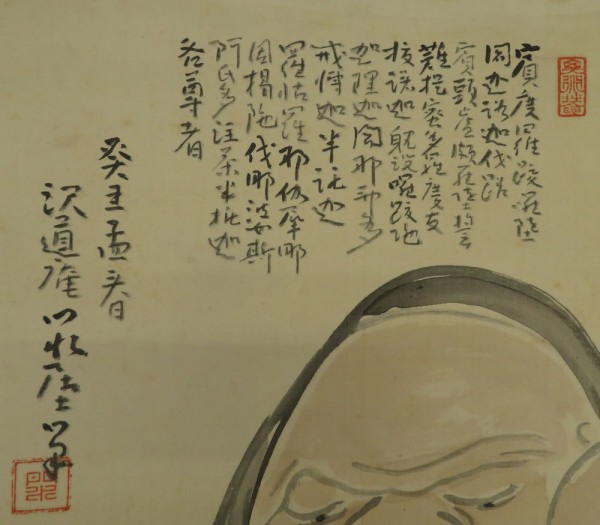 賓度羅跋囉墮
闍迦諾迦伐蹉
賓頭盧頗羅墮誓
難提蜜多羅慶友
拔諾迦耽没囉跋陀
迦理迦闍那弗多
戒博迦半託迦
羅怙羅那伽犀那
因揭陀伐那婆斯
阿氏多注荼半托迦
各尊者
癸丑孟春日
沢道庵 居士筆